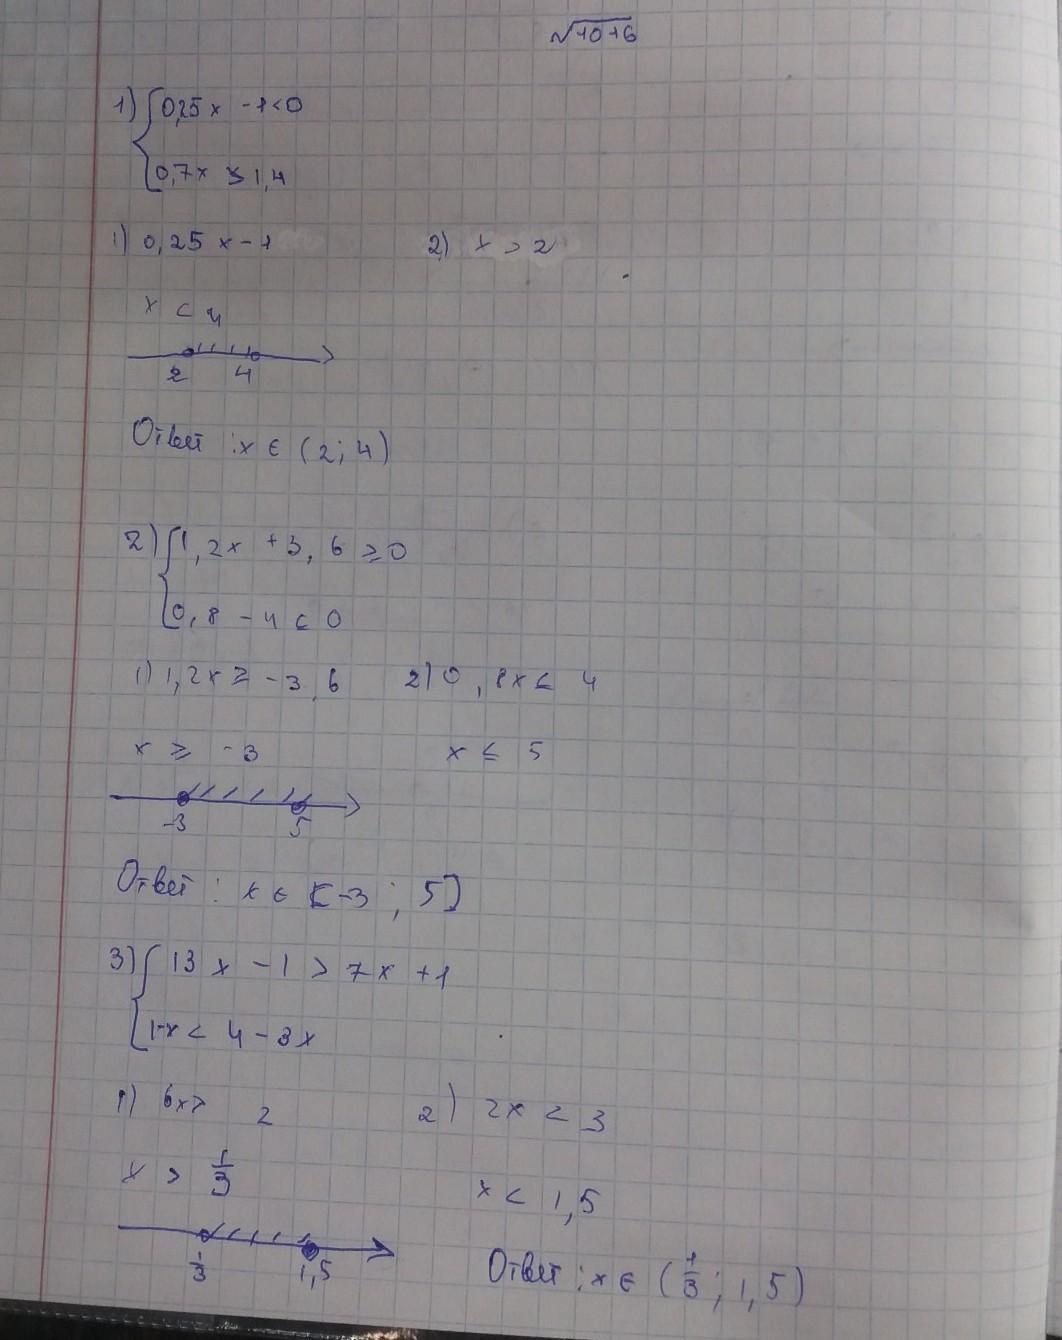 √10+6
1) { 0,25x -1<0
0,7x > 1,4
1) 0,25x-1 2) x > 2
x < 4
2 4
Ответ : x ∈ (2; 4)
2) { 1,2x +3,6 ≥0
0,8 - 4 ≤ 0
1) 1,2x ≥ -3,6 2) 0,8x ≤ 4
x ≥ -3 x ≤ 5
-3 5
Ответ : x ∈ [-3 ; 5]
3) { 13x -1 > 7x +1
1-x < 4-3x
1) 6x> 2 2) 2x < 3
x > 1/3 x < 1,5
1/3 1,5
Ответ : x ∈ (1/3 ; 1,5)